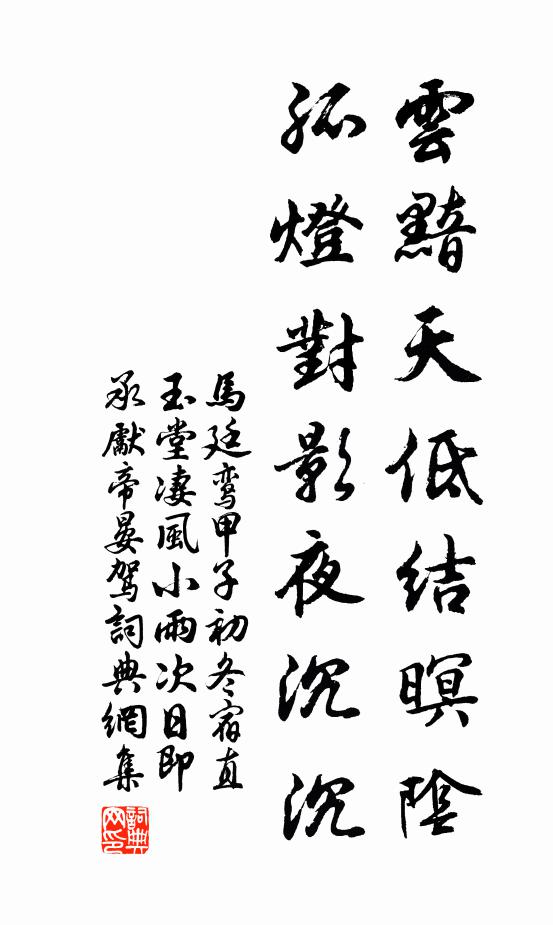 雲黯天低結暝陰
孤燈對影夜沉沉
馬廷鸞甲子初冬宿直
玉堂淒風小雨次日即
承獻帝晏駕詞典網集
詞典網印